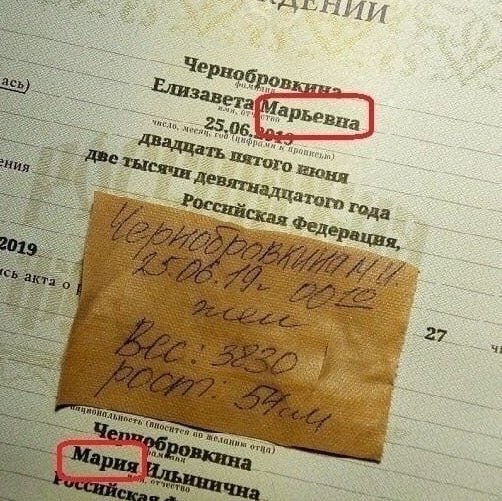 ЖДЕНИИ
Чернобровкина
фамилия
ась)
Елизавета Марьевна
имя, отчество
25.06.2019
число, месяц, год (цифрами и прописью)
двадцать пятого июня
две тысячи девятнадцатого года
Российская Федерация,
2019
Чернобровкина М.И.
25.06.19г 00 10
жен
Вес: 3830
рост: 54см
27
национальность (вносится по желанию отца)
Чернобровкина
фамилия
Мария Ильинична
имя, отчество
Российская